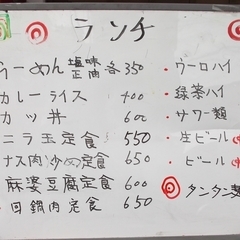 ランチ
らーめん 塩 味 正 肉 各350
カレーライス 400
カツ丼 600
ニラ玉定食 550
ナス肉炒め定食 650
麻婆豆腐定食 600
回鍋肉定食 650
・ウーロハイ
・緑茶ハイ
・サワー類
・生ビール
・ビール
タンタン麺